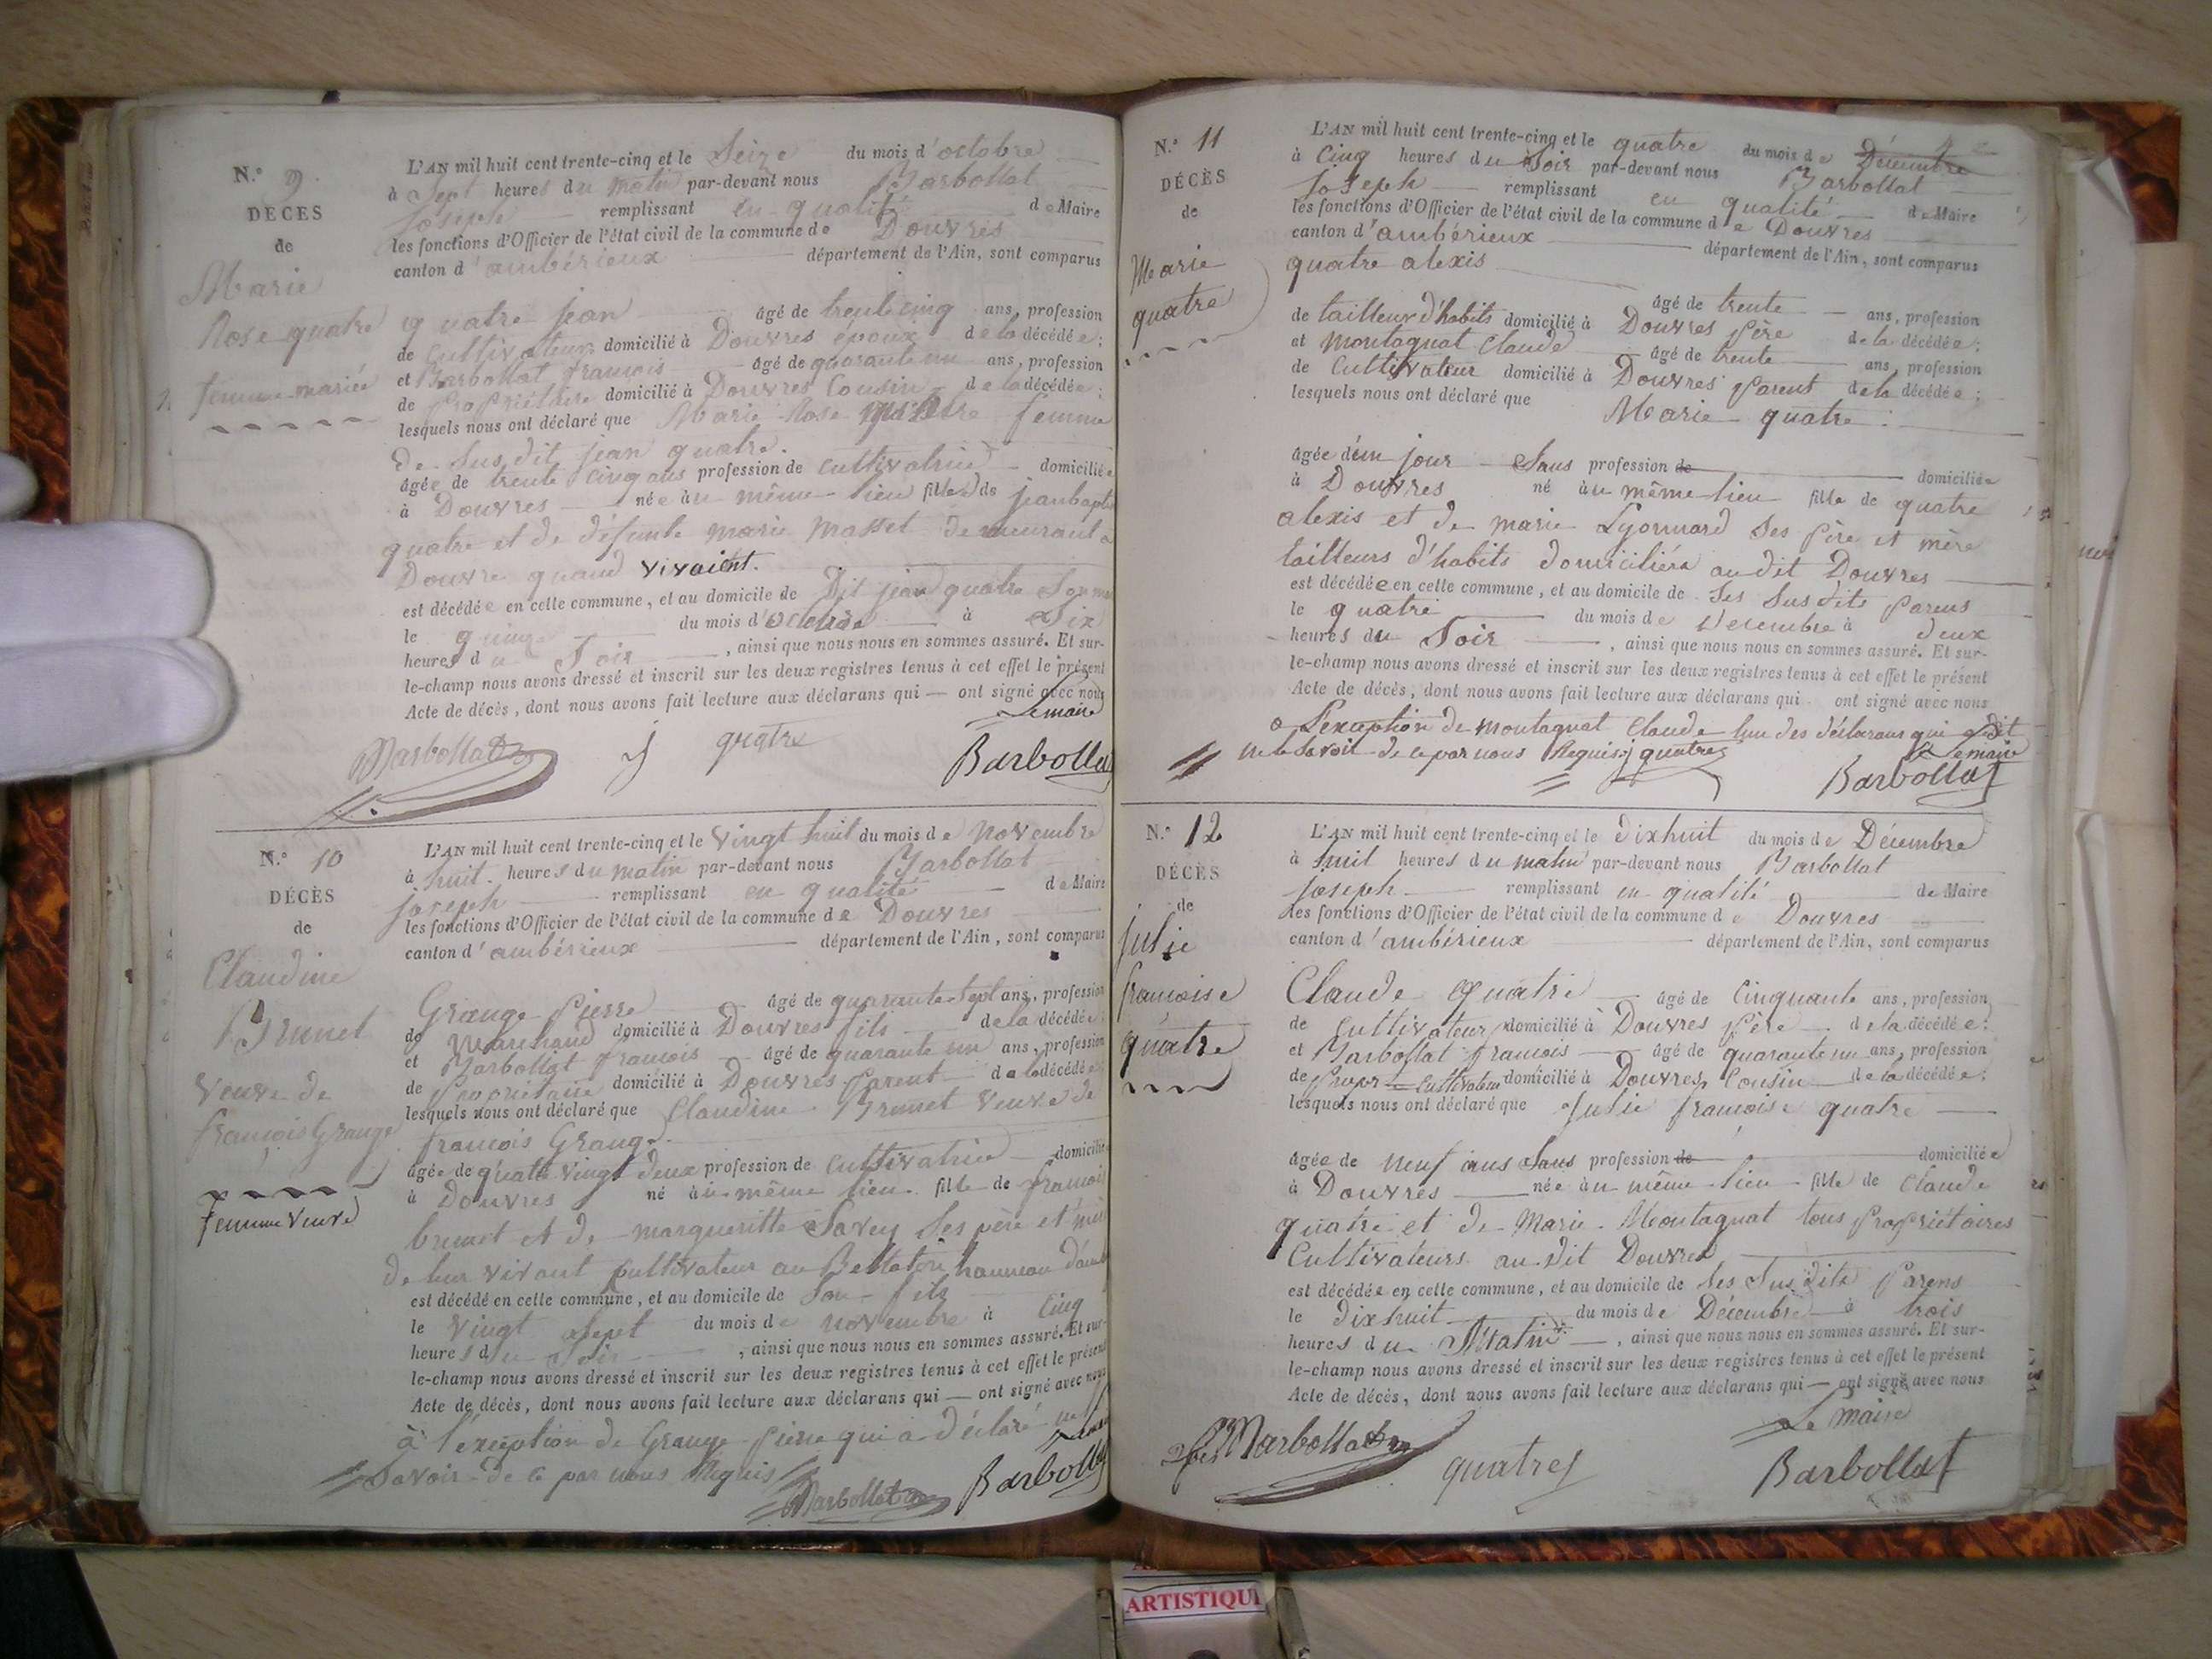 N.° 9.
DÉCÈS
de
Marie
Rose quatre
femme mariée
L'AN mil huit cent trente-cinq et le Seize du mois d'octobre
à Sept heures du matin par-devant nous Barbollat
Joseph remplissant en qualité de Maire
les fonctions d'Officier de l'état civil de la commune de Douvres
canton d'ambérieux département de l'Ain, sont comparus
quatre jean âgé de trente cinq ans, profession
de Cultivateur domicilié à Douvres époux de la décédée;
et Barbollat francois âgé de quarante un ans, profession
de Propriétaire domicilié à Douvres Cousin de la décédée;
lesquels nous ont déclaré que Marie Rose quatre femme
de Sus dit jean quatre.
âgée de trente cinq ans profession de Cultivatrice domiciliée
à Douvres née au même lieu fille de jean bapte
quatre et de défunte marie Masset demeurant a
Douvre quand vivaient.
est décédée en cette commune, et au domicile de Dit jean quatre
le quinze du mois d'octobre à Six
heures du Soir, ainsi que nous nous en sommes assuré. Et sur-
le-champ nous avons dressé et inscrit sur les deux registres tenus à cet effet le présent
Acte de décès, dont nous avons fait lecture aux déclarans qui — ont signé avec nous
Le maire
Barbollat j quatre Barbollat
N.° 10
DÉCÈS
de
Claudine
Brunet
Veuve de
françois Grange
femme Veuve
L'AN mil huit cent trente-cinq et le Vingt huit du mois de Novembre
à huit heures du matin par-devant nous Barbollat
joseph remplissant en qualité de Maire
les fonctions d'Officier de l'état civil de la commune de Douvres
canton d'ambérieux département de l'Ain, sont comparus
Grange Pierre âgé de quarante-Sept ans, profession
de Marchand domicilié à Douvres fils de la décédée;
et Barbollat francois âgé de quarante un ans, profession
de Propriétaire domicilié à Douvres Parent de la décédée
lesquels nous ont déclaré que Claudine Brunet Veuve de
francois Grange.
âgée de quatre vingt deux profession de Cultivatrice domiciliée
à Douvres né au même lieu fille de francois
brunet et de margueritte Savey Ses père et mère
de leur vivant Cultivateur au hameau
est décédé en cette commune, et au domicile de Son fils
le Vingt Sept du mois de novembre à Cinq
heures du Soir, ainsi que nous nous en sommes assuré. Et sur-
le-champ nous avons dressé et inscrit sur les deux registres tenus à cet effet le présent
Acte de décès, dont nous avons fait lecture aux déclarans qui — ont signé avec nous
à l'exception de Grange Pierre qui a déclaré ne
Savoir de ce par nous Requis
Barbollat Barbollat
N.° 11
DÉCÈS
de
Marie
quatre
L'AN mil huit cent trente-cinq et le quatre du mois de Décembre
à Cinq heures du Soir par-devant nous Barbollat
Joseph remplissant en qualité de Maire
les fonctions d'Officier de l'état civil de la commune de Douvres
canton d'ambérieux département de l'Ain, sont comparus
quatre alexis
âgé de trente ans, profession
de tailleur d'habits domicilié à Douvres Père de la décédée;
et Montagnat Claude âgé de trente ans, profession
de Cultivateur domicilié à Douvres Parent de la décédée;
lesquels nous ont déclaré que
Marie quatre.
âgée d'un jour Sans profession de domiciliée
à Douvres né au même lieu fille de quatre
alexis et de marie Lyonnard Ses Père et mère
tailleurs d'habits domiciliés au dit Douvres
est décédée en cette commune, et au domicile de Ses Susdits Parens
le quatre du mois de Décembre à deux
heures du Soir, ainsi que nous nous en sommes assuré. Et sur-
le-champ nous avons dressé et inscrit sur les deux registres tenus à cet effet le présent
Acte de décès, dont nous avons fait lecture aux déclarans qui ont signé avec nous
a L'exception de Montagnat Claude l'un des déclarans qui a dit
ne le Savoir de ce par nous Requis j quatre Le maire
Barbollat
N.° 12
DÉCÈS
de
Julie
francoise
quatre
L'AN mil huit cent trente-cinq et le dix huit du mois de Décembre
à huit heures du matin par-devant nous Barbollat
Joseph remplissant en qualité de Maire
les fonctions d'Officier de l'état civil de la commune de Douvres
canton d'ambérieux département de l'Ain, sont comparus
Claude quatre âgé de Cinquante ans, profession
de Cultivateur domicilié à Douvres Père de la décédée;
et Barbollat francois âgé de quarante un ans, profession
de Propre Cultivateur domicilié à Douvres Cousin de la décédée;
lesquels nous ont déclaré que Julie francoise quatre
âgée de neuf ans Sans profession de domiciliée
à Douvres née au même lieu fille de Claude
quatre et de Marie Montagnat tous Propriétaires
Cultivateurs au dit Douvres
est décédée en cette commune, et au domicile de Ses Susdits Parens
le dix huit du mois de Décembre à trois
heures du Matin, ainsi que nous nous en sommes assuré. Et sur-
le-champ nous avons dressé et inscrit sur les deux registres tenus à cet effet le présent
Acte de décès, dont nous avons fait lecture aux déclarans qui — ont signé avec nous
Le maire
Barbollat quatre Barbollat
ARTISTIQU